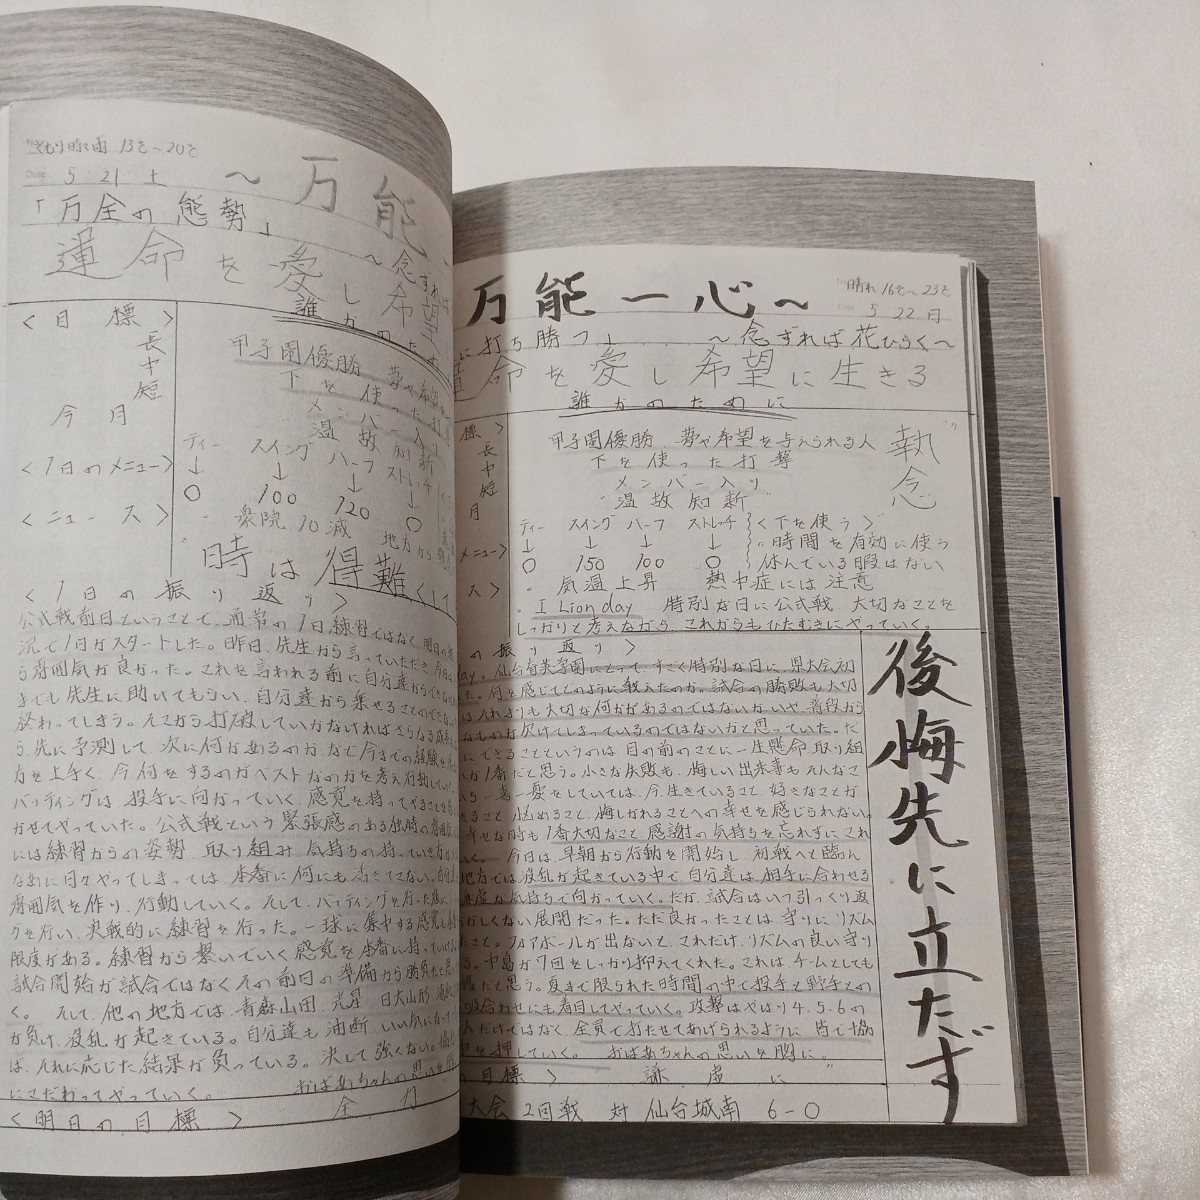 くもり時々雨 13℃〜20℃
5 21 土
〜万能
「万全の態勢」
〜念ずれば
運命を愛し希望
誰かのため
<目標>
長
中
短
今月
甲子園優勝 夢や希望
下を使った打撃
メンバー入り
温故知新
ティー スイング ハーフ ストレッチ
↓ ↓ ↓ ↓
<1日のメニュー>
0 100 120 0
<ニュース>
衆院10減 地方から
時は得難くして
<1日の振り返り>
公式戦前日ということで、通常の1日練習ではなく、明日の
況で1日がスタートした。昨日、先生から言っていただき、今日は
ら雰囲気が良かった。これを言われる前に自分達からできな
までも先生に助けてもらい、自分達から乗せることのできない
終わってしまう。そこから打破していかなければさらなる
う。先に予測して、次に何があるのかなど今までの経験を
力を上手く、今、何をするのがベストなのかを考え行動して
バッティングは投手に向かっていく、感覚を持ってやることを
かせてやっていた。公式戦という緊張感のある独特の雰囲気
には練習からの姿勢、取り組み、気持ちの持っていき方
なめに日々やってしまっては、本番に何にも活きてこない。
雰囲気を作り、行動していく。そして、バッティングを行った後に
グを行い、実戦的に練習を行った。一球に集中する感覚も
限度がある。練習から繋いでいく感覚を本番に持っていける
試合開始が試合ではなくその前日の準備から勝負だと思
く。 そして、他の地方では、青森山田、光星、日大山形
が負け、波乱が起きている。自分達も油断、いい気になって
ば、それに応じた結果が負っている。決して強くない。
にこだわってやっていく。 おばあちゃんの思いを
<明日の目標> 全力
万能一心〜
晴れ 16℃〜23℃
5 22 日
に打ち勝つ」 〜念ずれば花ひらく〜
命を愛し希望に生きる
誰かのために
標>
長
中
短
月
甲子園優勝、夢や希望を与えられる人
下を使った打撃
メンバー入り
"温故知新"
執念
ティー スイング ハーフ ストレッチ <下を使う>
↓ ↓ ↓ ↓ 。時間を有効に使う
メニュー> 0 150 100 0 休んでいる暇はない
ス> ・気温上昇 熱中症には注意
・I Lion day 特別な日に公式戦、大切なことを
しっかりと考えながら、これからもひたむきにやっていく。
の振り返り>
day。仙台育英学園にとって、すごく特別な日に、県大会初
た。何を感じてどのように戦えたのか。試合の勝敗も大切
はそれよりも大切な何かがあるのではないかいや、普段から
なものが欠けてしまっているのではないかと思っていた。だ
にできることというのは、目の前のことに一生懸命、取り組
が1番だと思う。小さな失敗も、悔しい出来事もそんなこ
ら一喜一憂をしていては、今、生きていること、好きなことが
きること、悩めること、悔しがれることへの幸せを感じられない。
幸せな時も1番大切なこと、感謝の気持ちを忘れずにこれ
いく。 今日は、早朝から行動を開始し、初戦へと臨ん
地方では波乱が起きている中で、自分達は、相手に合わせる
謙虚な気持ちで向かっていく。だが、試合はいつ引っくり返
おかしくない展開だった。ただ良かったことは、守りにリズム
たこと。フォアボールが出ないと、これだけ、リズムの良い守り
る。中島が7回をしっかり抑えてくれた。これは、チームとしても
だと思う。夏まで限られた時間の中で投手と野手との
み合わせにも着目してやっていく。攻撃はやはり4.5.6の
人だけではなく、全員で打たせてあげられるように、皆で協
を押していく。 おばあちゃんの思いを胸に。
の目標> 謙虚に
大会2回戦 対 仙台城南 6-0
後悔先に立たず